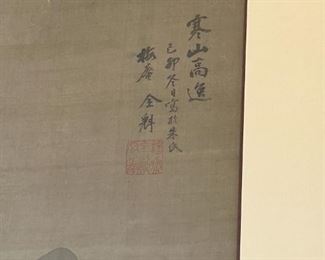 寒山高逸
己卯冬日寫於朱氏
梅庵 金